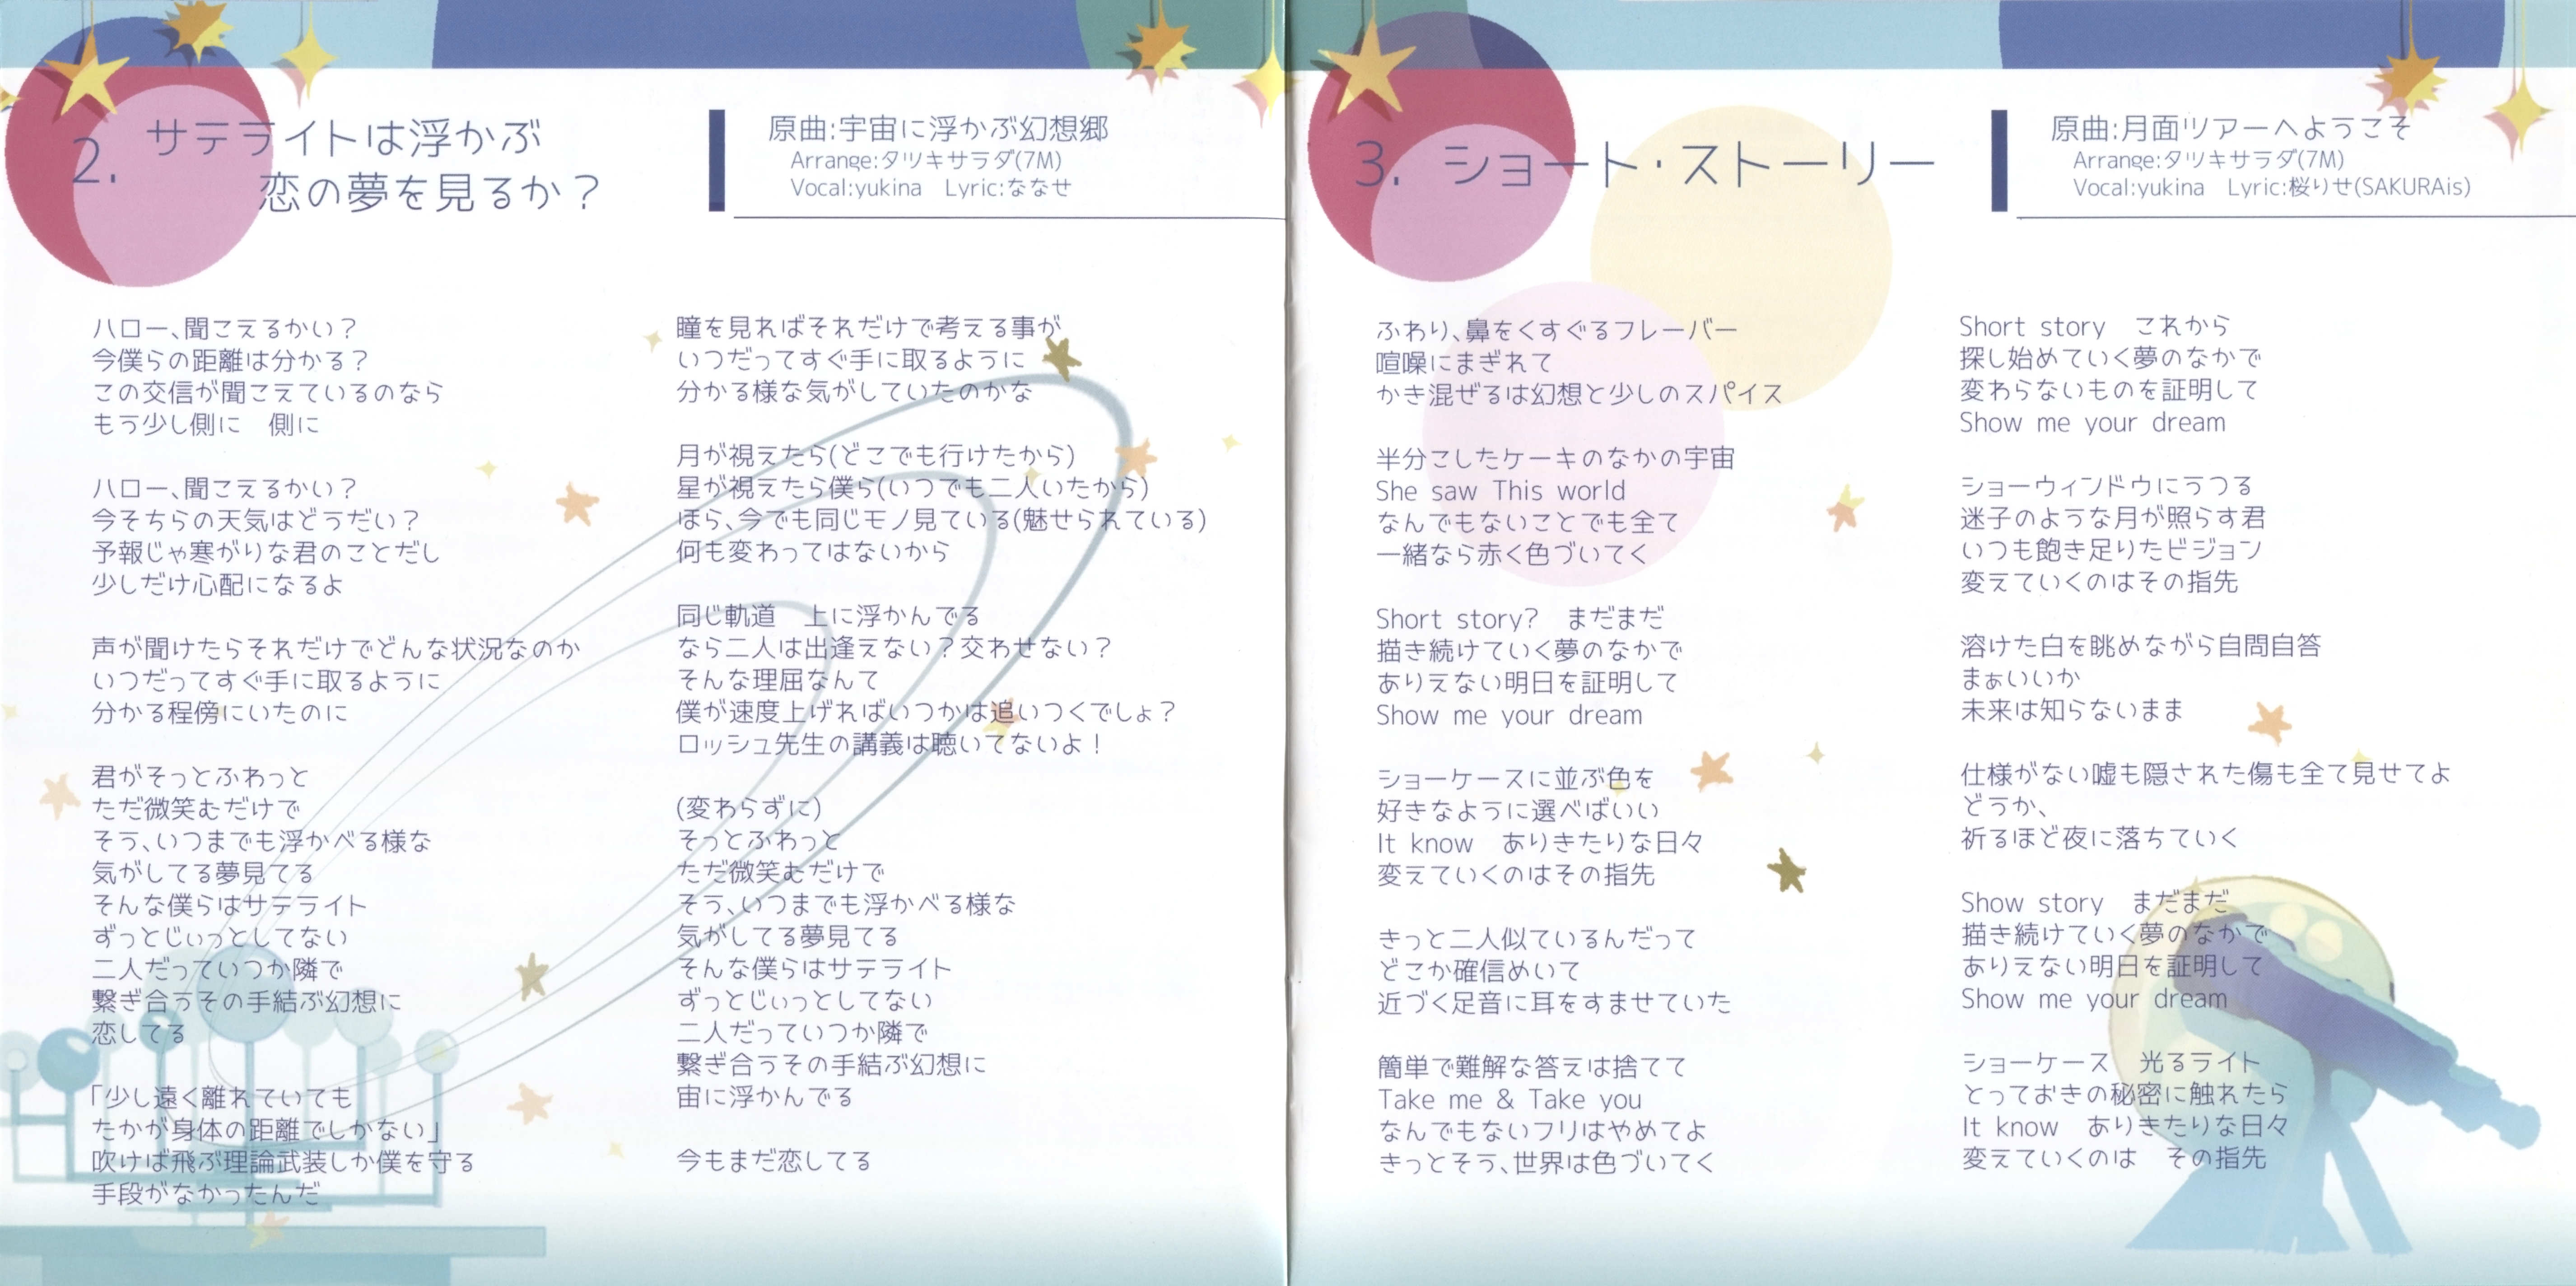 2. サテライトは浮かぶ
恋の夢を見るか？
原曲:宇宙に浮かぶ幻想郷
Arrange:タツキサラダ(7M)
Vocal:yukina　Lyric:ななせ
ハロー、聞こえるかい？
今僕らの距離は分かる？
この交信が聞こえているのなら
もう少し側に　側に
ハロー、聞こえるかい？
今そちらの天気はどうだい？
予報じゃ寒がりな君のことだし
少しだけ心配になるよ
声が聞けたらそれだけでどんな状況なのか
いつだってすぐ手に取るように
分かる程傍にいたのに
君がそっとふわっと
ただ微笑むだけで
そう、いつまでも浮かべる様な
気がしてる夢見てる
そんな僕らはサテライト
ずっとじぃっとしてない
二人だっていつか隣で
繋ぎ合うその手結ぶ幻想に
恋してる
「少し遠く離れていても
たかが身体の距離でしかない」
吹けば飛ぶ理論武装しか僕を守る
手段がなかったんだ
瞳を見ればそれだけで考える事が
いつだってすぐ手に取るように
分かる様な気がしていたのかな
月が視えたら(どこでも行けたから)
星が視えたら僕ら(いつでも二人いたから)
ほら、今でも同じモノ見ている(魅せられている)
何も変わってはないから
同じ軌道　上に浮かんでる
なら二人は出逢えない？交わせない？
そんな理屈なんて
僕が速度上げればいつかは追いつくでしょ？
ロッシュ先生の講義は聴いてないよ！
(変わらずに)
そっとふわっと
ただ微笑むだけで
そう、いつまでも浮かべる様な
気がしてる夢見てる
そんな僕らはサテライト
ずっとじぃっとしてない
二人だっていつか隣で
繋ぎ合うその手結ぶ幻想に
宙に浮かんでる
今もまだ恋してる
3. ショート・ストーリー
原曲:月面ツアーへようこそ
Arrange:タツキサラダ(7M)
Vocal:yukina　Lyric:桜りせ(SAKURAis)
ふわり、鼻をくすぐるフレーバー
喧噪にまぎれて
かき混ぜるは幻想と少しのスパイス
半分こしたケーキのなかの宇宙
She saw This world
なんでもないことでも全て
一緒なら赤く色づいてく
Short story?　まだまだ
描き続けていく夢のなかで
ありえない明日を証明して
Show me your dream
ショーケースに並ぶ色を
好きなように選べばいい
It know　ありきたりな日々
変えていくのはその指先
きっと二人似ているんだって
どこか確信めいて
近づく足音に耳をすませていた
簡単で難解な答えは捨てて
Take me & Take you
なんでもないフリはやめてよ
きっとそう、世界は色づいてく
Short story　これから
探し始めていく夢のなかで
変わらないものを証明して
Show me your dream
ショーウィンドウにうつる
迷子のような月が照らす君
いつも飽き足りたビジョン
変えていくのはその指先
溶けた白を眺めながら自問自答
まぁいいか
未来は知らないまま
仕様がない嘘も隠された傷も全て見せてよ
どうか、
祈るほど夜に落ちていく
Show story　まだまだ
描き続けていく夢のなかで
ありえない明日を証明して
Show me your dream
ショーケース　光るライト
とっておきの秘密に触れたら
It know　ありきたりな日々
変えていくのは　その指先